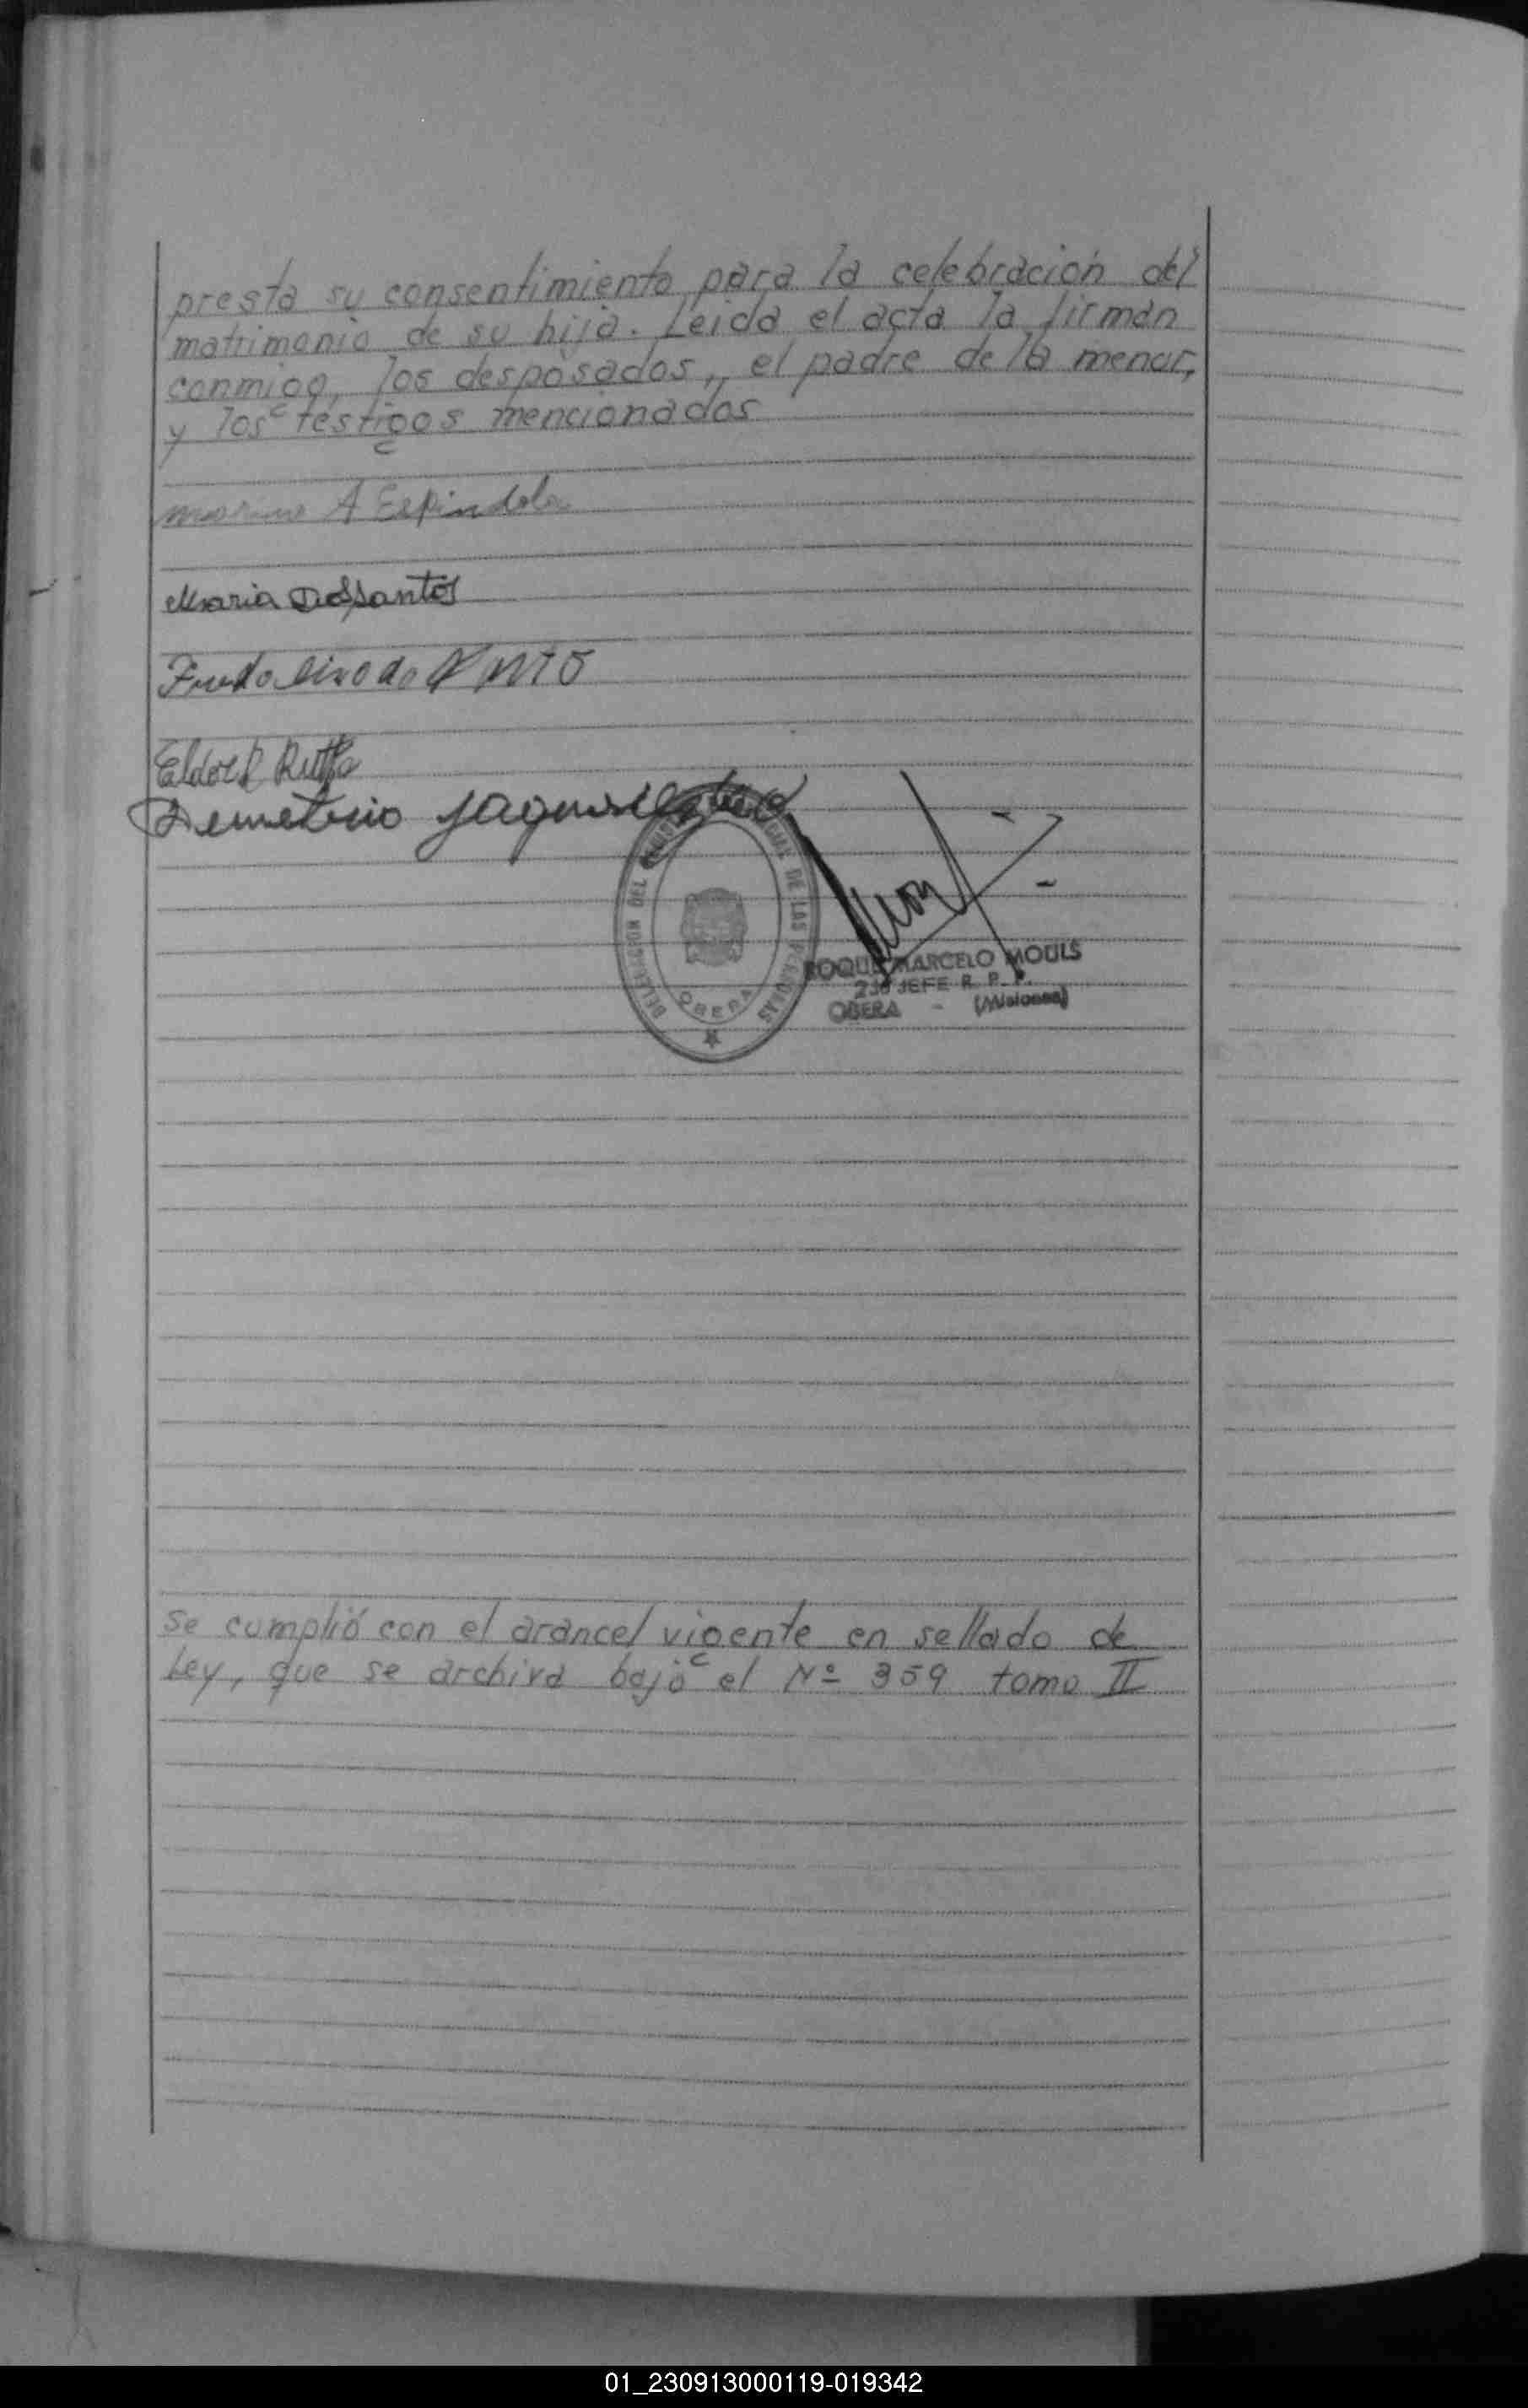 presta su consentimiento para la celebración del
matrimonio de su hija. Leida el acta la firman
conmigo, los desposados, el padre de la menor,
y los testigos mencionados
A Espindola
Maria Dos Santos
Eldor R
Demetrio
DELEGACION DEL DE LAS PERSONAS
OBERA
ROQUE MARCELO MOULS
2do JEFE R. P. P.
OBERA - (Misiones)
se cumplió con el arancel vigente en sellado de
Ley, que se archiva bajo el Nº 359 tomo II
01_230913000119-019342